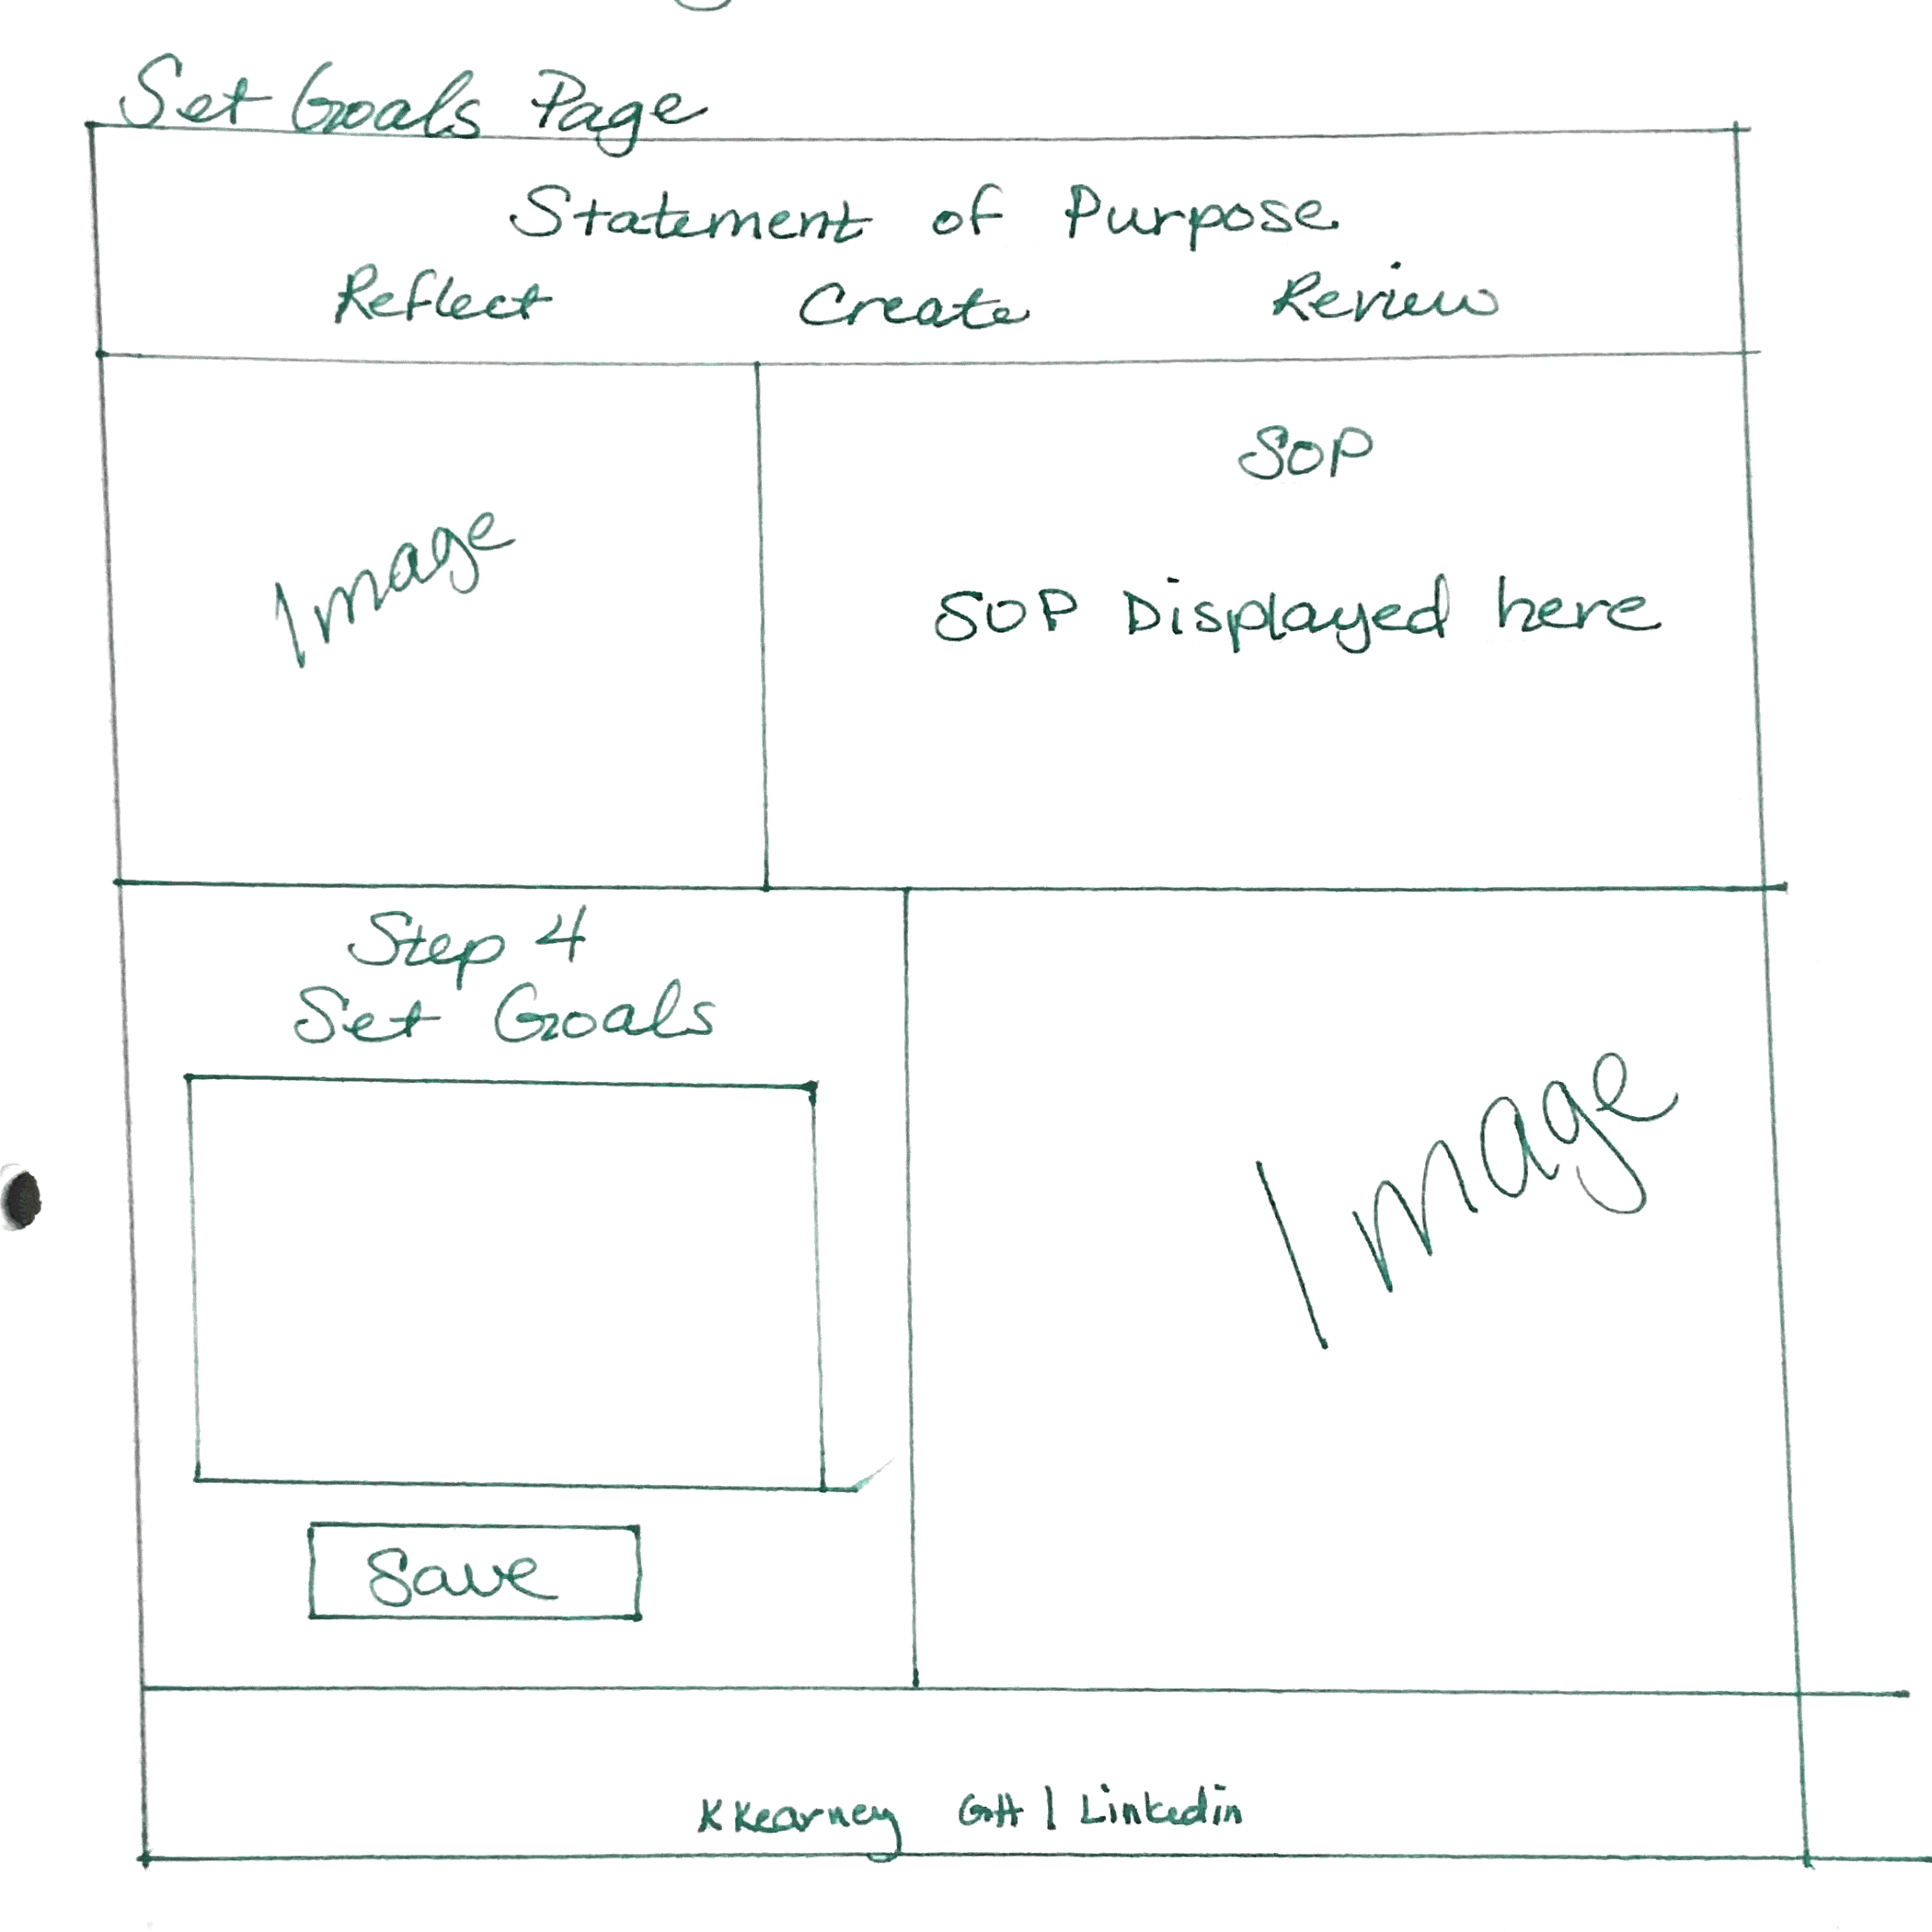 Set Goals Page
Statement of Purpose
Reflect Create Review
Image
SOP
SOP Displayed here
Step 4
Set Goals
Image
Save
KKearney GH | Linkedin